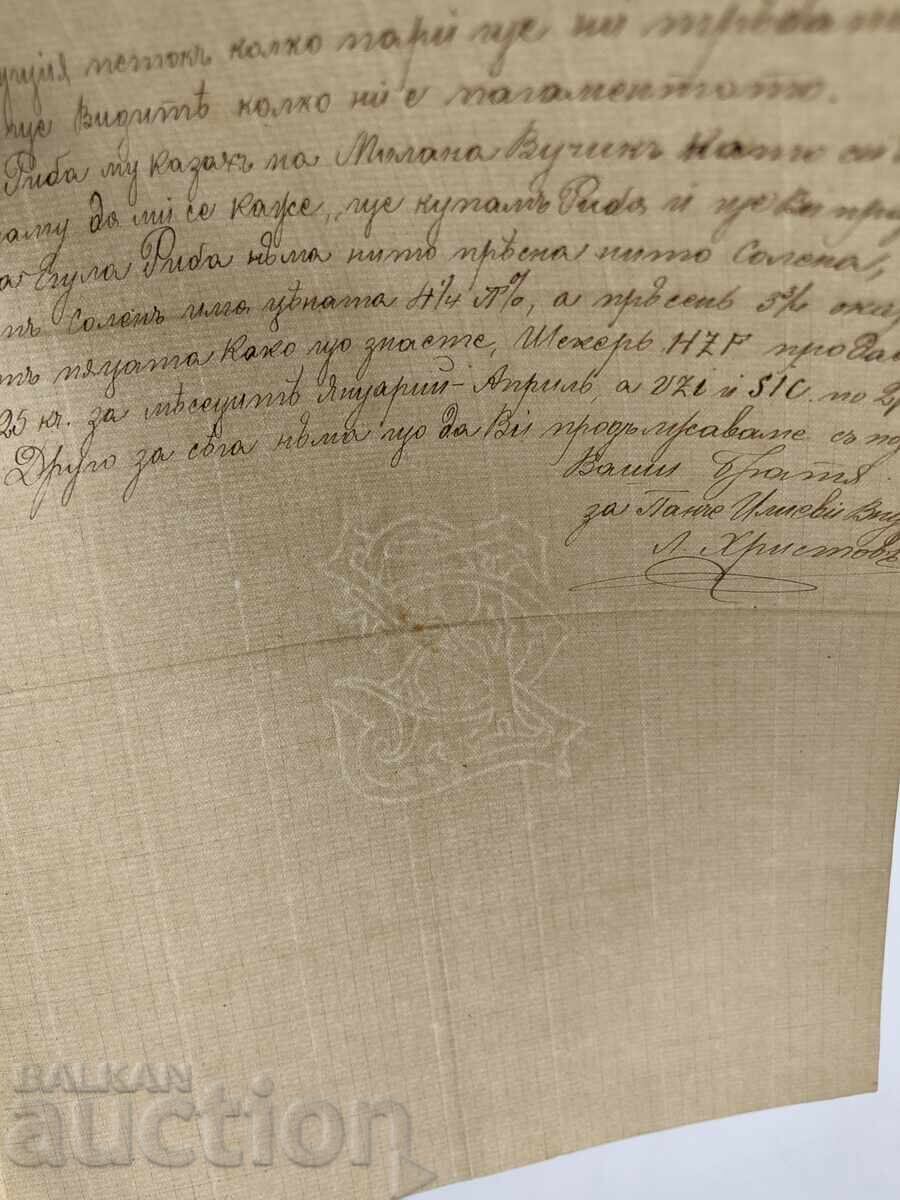 петокъ колко пари ще ни трѣба
ще видитѣ колко ни е пагаментото.
Риба му казахъ на Милана Вучикъ като си
да ми се каже, ще купамъ Риба и ще Ви
Риба нѣма нито прѣсна нито Солена,
Соленъ има цѣната 4¼ а прѣсенъ 5¾
пяцата како що знаете, Шекеръ HZF продав
25 кч. за мѣсецитѣ Януарий-Априлъ, а VZi и SIC. по 2
Друго за сѣга нѣма що да Ви продължаваме съ
Ваши Братя
за Панче Илиеви
Л. Христовъ
BALKAN
auction